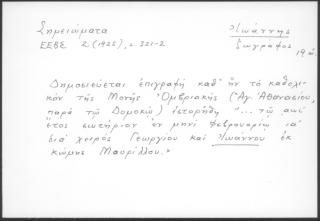 Σημειώματα
Ἰωάννης
ΕΕΒΣ 2 (1925), σ. 321-2
ζωγράφος
19 α
Δημοσιεύεται ἐπιγραφή καθ' ἥν τό καθολι-
κόν τῆς Μονῆς Ὀμβριακῆς (Ἁγ. Ἀθανασίου,
παρά τῷ Δομοκῷ) ἱστορήθη "... τῷ
ἔτος σωτήριον ἐν μηνί φεβρουαρίῳ ια'
διά χειρός Γεωργίου καί Ἰωάννου ἐκ
κώμης Μαυρίλλου."